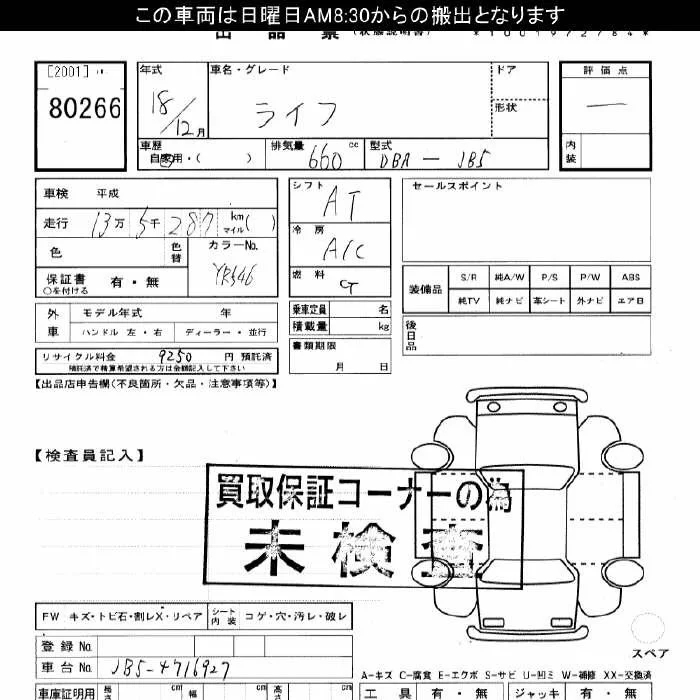 この車両は日曜日AM8:30からの搬出となります
出品票 (状態説明書)
[2001]
80266
年式 18/12月
車名・グレード ライフ
ドア
形状
評価点 —
内装
車歴 自家用・( )
排気量 660 cc
型式 DBA — JB5
車検 平成
走行 13万 5千 287 km マイル( )
色 色替 カラーNo. YR546
保証書 ○を付ける 有・無
シフト AT
冷房 A/C
燃料 G
セールスポイント
装備品 S/R 純A/W P/S P/W ABS
純TV 純ナビ 革シート 外ナビ エアB
外車 モデル年式 年
ハンドル 左・右 ディーラー・並行
乗車定員 名
積載量 kg
後日品
リサイクル料金 9250 円 預託済
預託済で精算希望される方は金額記入して下さい
書類期限 月 日
【出品店申告欄(不良箇所・欠品・注意事項等)】
【検査員記入】
買取保証コーナーの為
未検査
FW キズ・トビ石・割レX・リペア シート内装 コゲ・穴・汚レ・破レ
登録No.
車台No. JB5-4716927
スペア
A-キズ C-腐食 E-エクボ S-サビ U-凹ミ W-補修 XX-交換済
車庫証明用 長さ cm 幅 cm 高さ cm
工具 有・無 ジャッキ 有・無